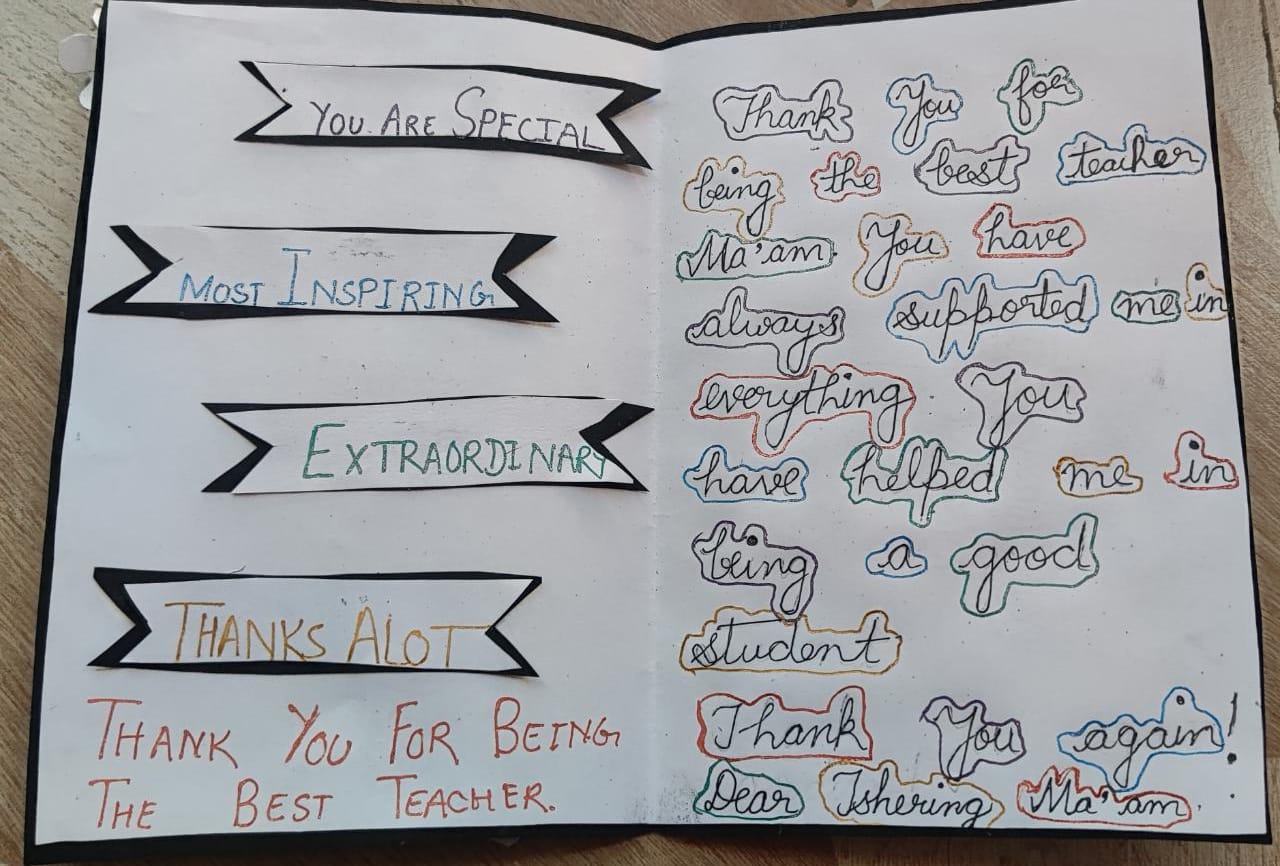 YOU ARE SPECIAL
MOST INSPIRING
EXTRAORDINARY
THANKS ALOT
THANK YOU FOR BEING
THE BEST TEACHER.
Thank You for
being the best teacher
Ma'am You have
always supported me in
everything You
have helped me in
being a good
student
Thank You again!
Dear Tshering Ma'am.